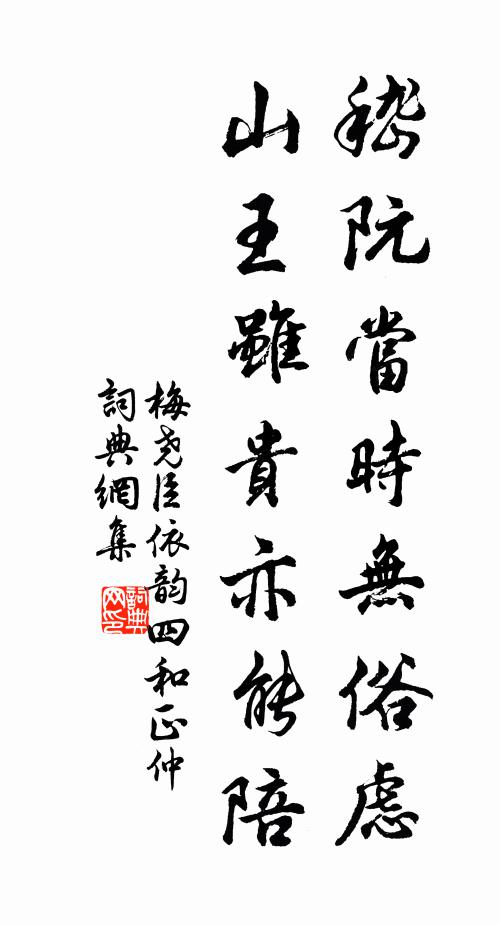 嵇阮當時無俗慮
山王雖貴亦能陪
梅堯臣依韵四和正仲
詞典網集
詞典
网印